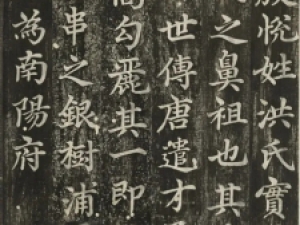 悅姓洪氏實
之鼻祖也其
世傳唐遣才
高勾麗其一即
串之銀樹浦
為南陽府